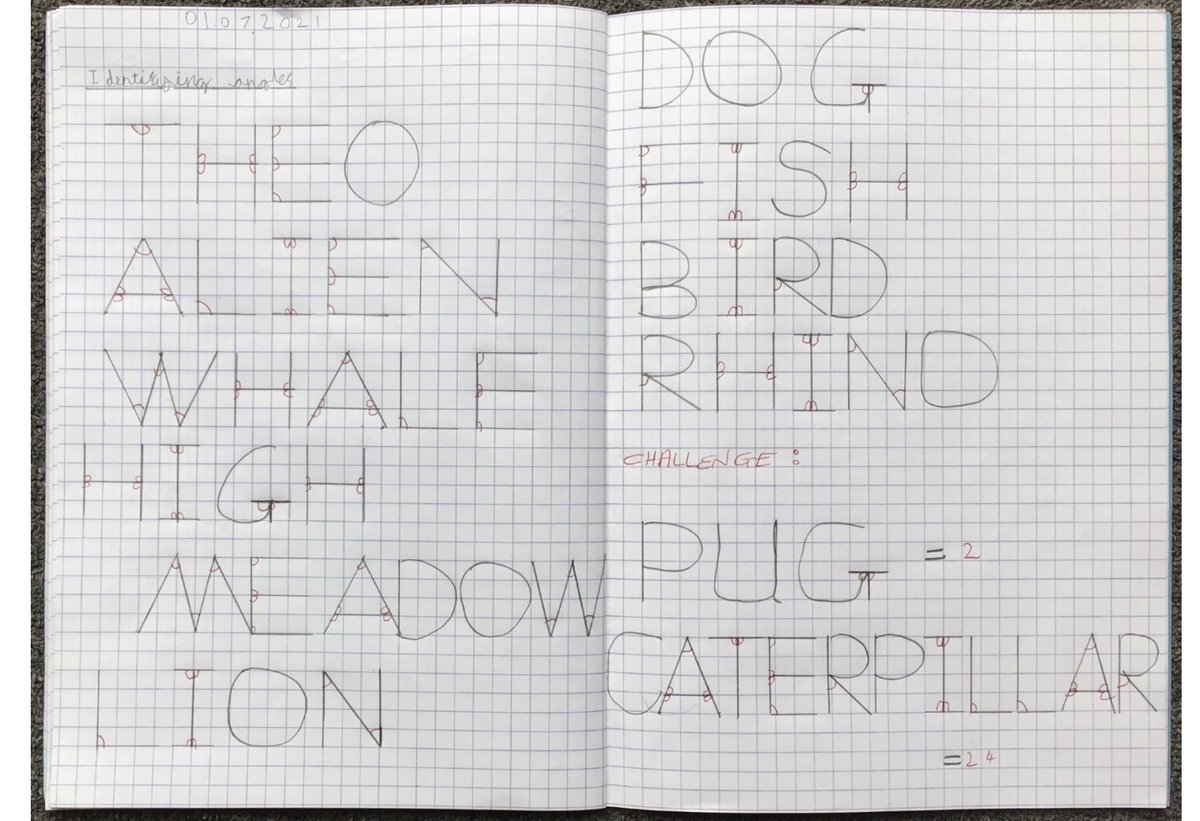 01.07.2021
Identifying angles
THEO
ALIEN
WHALE
HIGH
MEADOW
LION
DOG
FISH
BIRD
RHINO
CHALLENGE:
PUG = 2
CATERPILLAR
= 24